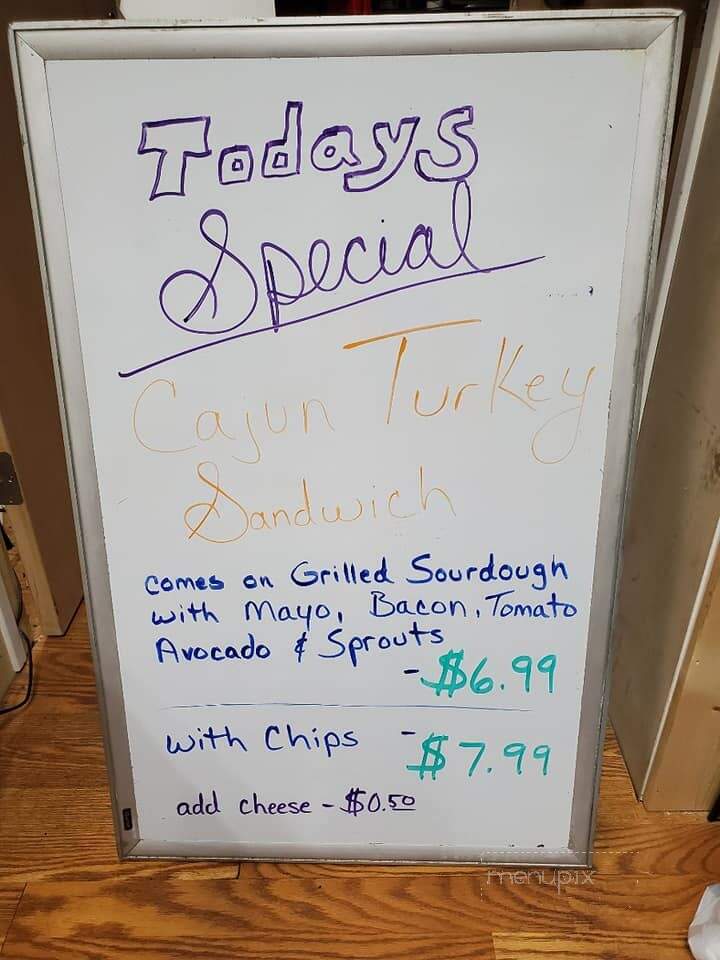 Todays
Special
Cajun Turkey
Sandwich
comes on Grilled Sourdough
with Mayo, Bacon, Tomato
Avocado & Sprouts
- $6.99
with Chips - $7.99
add cheese - $0.50
menupix